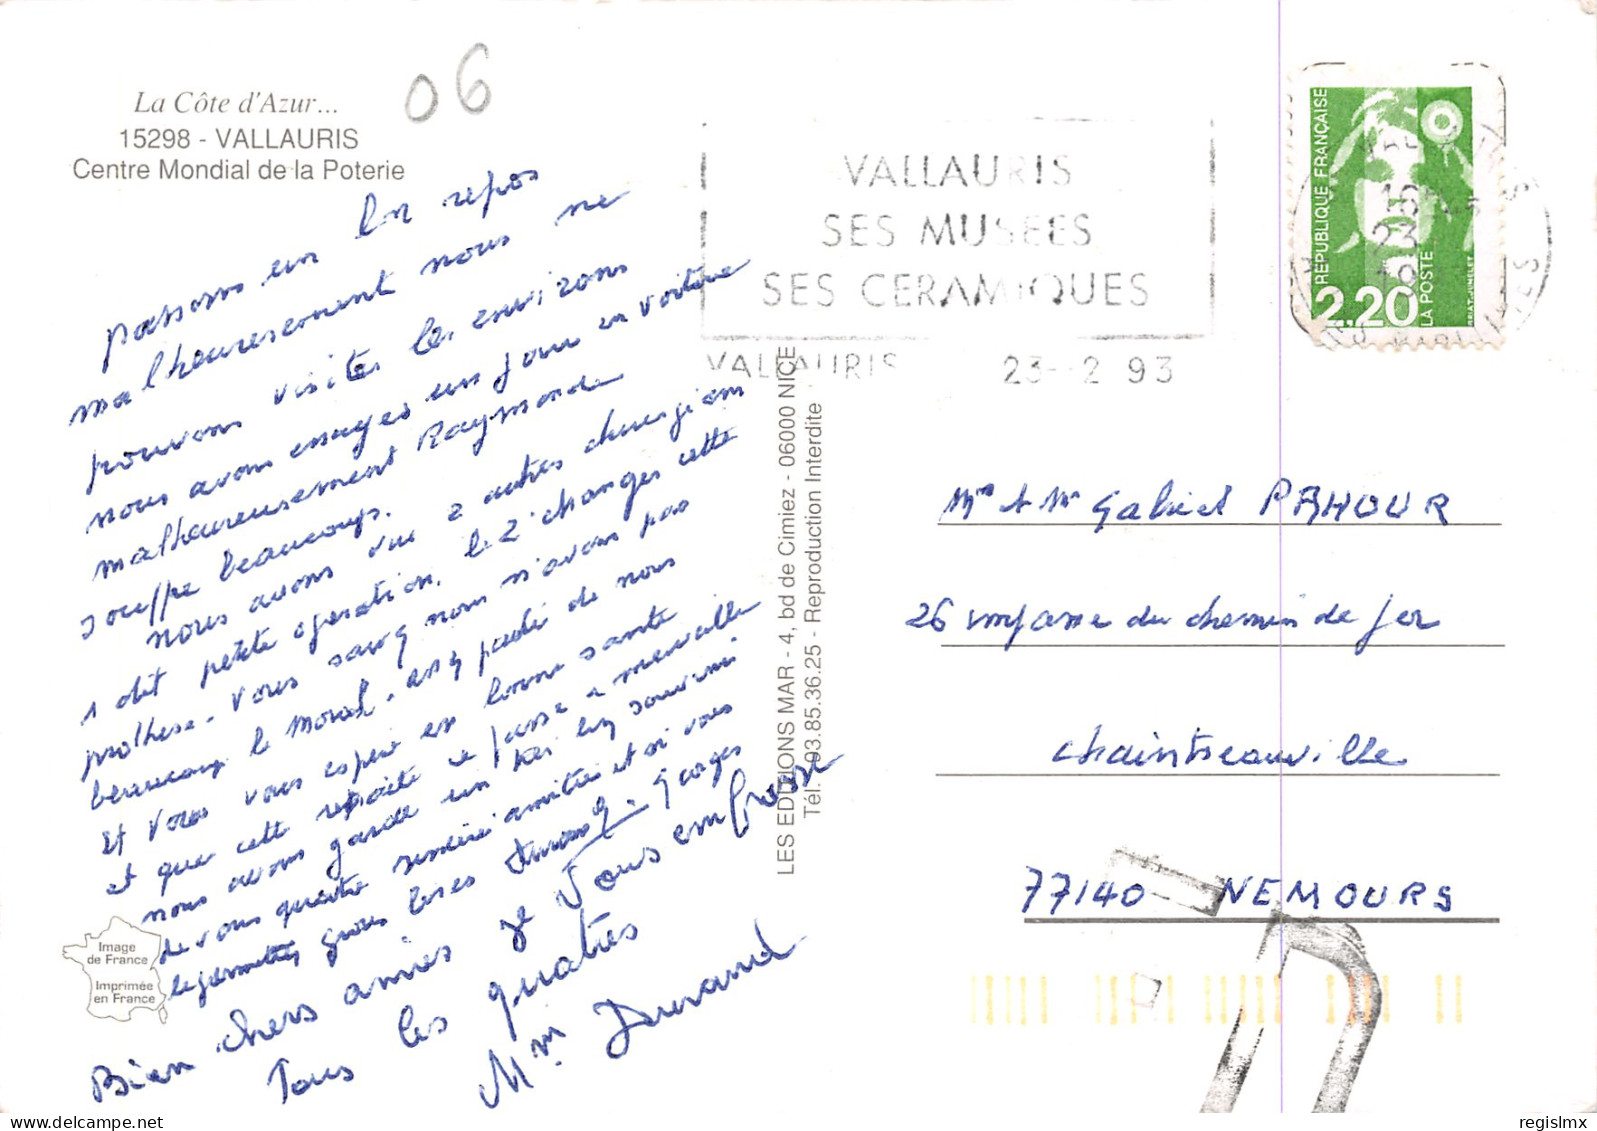 La Côte d'Azur...
15298 - VALLAURIS
Centre Mondial de la Poterie
06
passons un bon repos
malheuresement nous ne
pouvons visites les environs
nous avons essayes un jour en voiture
malheureusement Raymonde
souffre beaucoup.
nous avons vu 2 autres chirurgiens
1 dit petite operation. le 2e changer cette
prothese. vous savez nous n'avons pas
beaucoup le moral. en partie de nous
Et vous vous espere en bonne sante
et que cette retraite se passe a merveille
nous avons garde un tres bon souvenir
de vous quatre sincere amitiés et si vous
le permettez gros bises Durand. Georges
Bien chers amies je vous embrasse
Tous les quatres
Mme Durand
Image
de France
Imprimée
en France
LES EDITIONS MAR - 4, bd de Cimiez - 06000 NICE
Tél. 93.85.36.25 - Reproduction Interdite
VALLAURIS
SES MUSEES
SES CERAMIQUES
VALLAURIS 23-2 93
REPUBLIQUE FRANÇAISE
2,20
LA POSTE
Mme & Mr Gabriel PAHOUR
26 impasse du chemin de fer
chaintreauville
77140 NEMOURS
regislmx